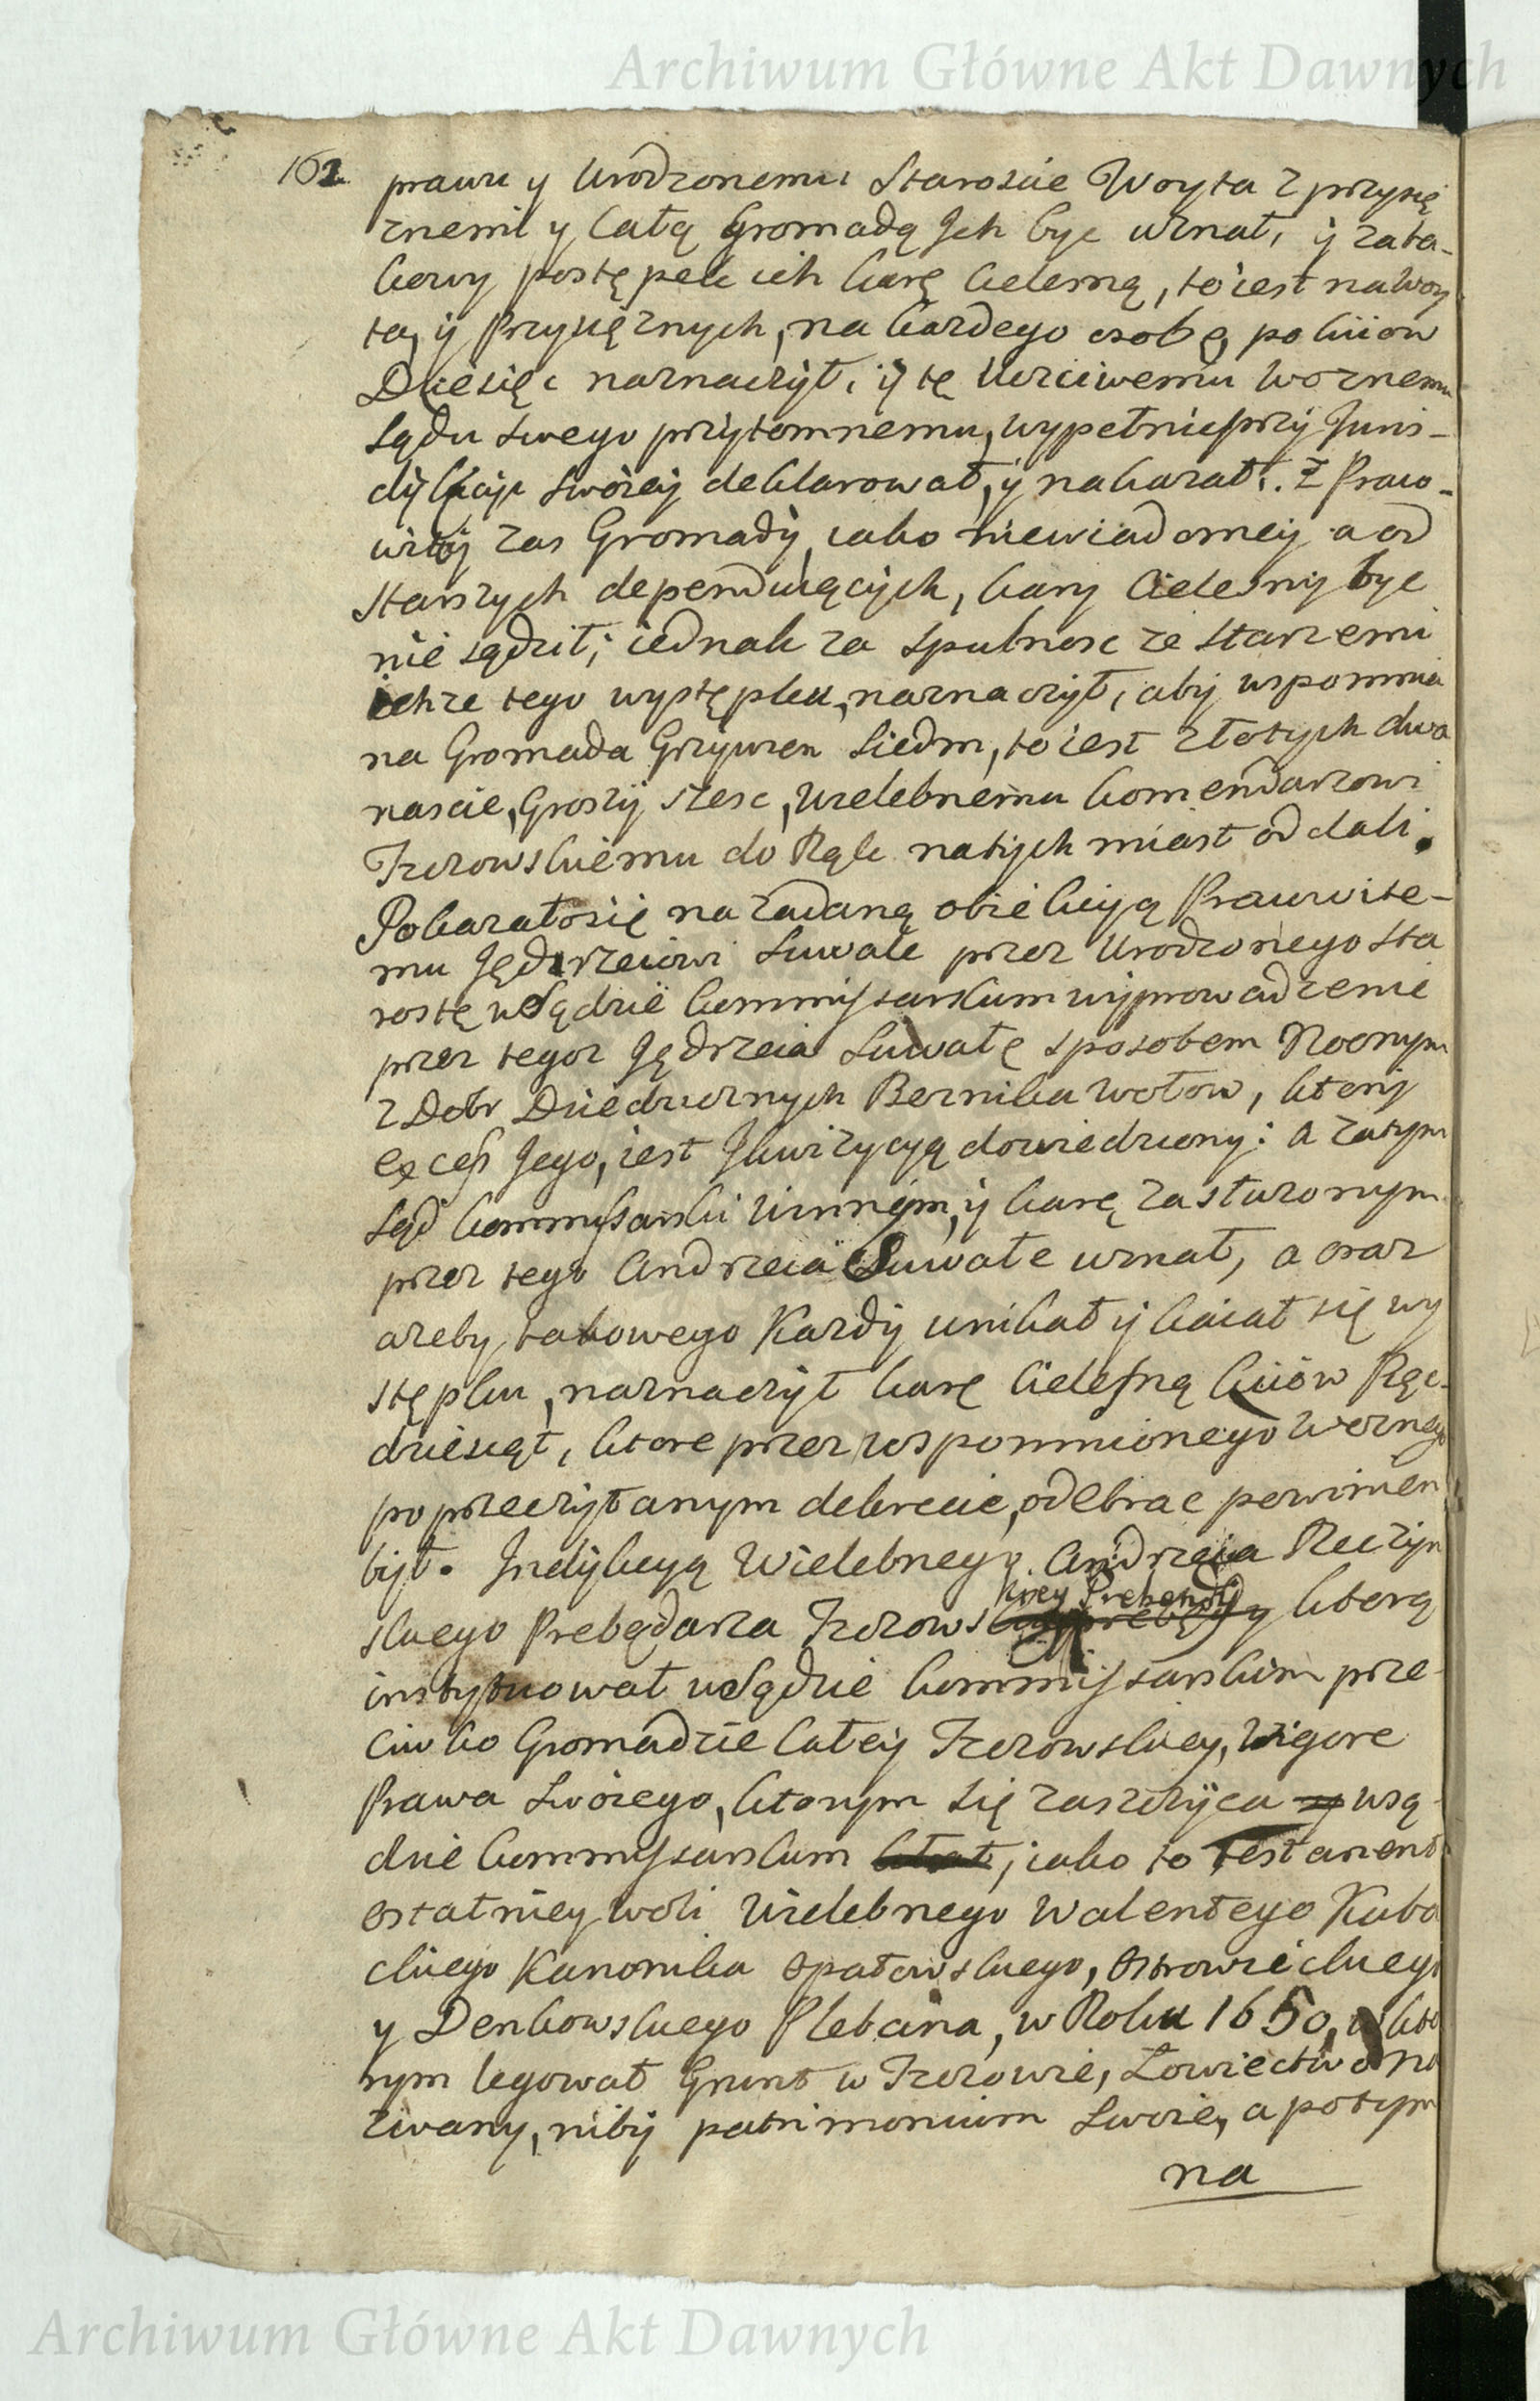 Archiwum Główne Akt Dawnych
162
prawu y Urodzonemu Staroscie Woyta z przysię
znemi y całą Gromadą Jch byc uznał, ÿ za ta-
kowy postępek ich karę cielesną, to iest na Woy
ta, ÿ Przysięznych, na kazdego osobę, po kiiow
Dziesięc naznaczÿł, ÿ tę Uczciwemu Woznemu
Sądu swego przÿtomnemu, wypełnic przÿ Juris-
dÿkcÿi swoieÿ deklarował, ÿ nakazał. Z Praco-
witÿ zas Gromadÿ, iako niewiadomeÿ a od
starszych dependuiącÿch, kary Cielesnÿ byc
nie sądził; iednak za spulnosc ze starszemi
ichze tego występku, naznaczÿł, abÿ wspomnia
na Gromada Grzÿwien Siedm, to iest złotych dwa
nascie, Groszÿ szesc, Wielebnemu komendarzowi
Jrzowskiemu do Rąk natÿch miast oddali.
Pokazało się na zadaną obiekcÿą Pracowite-
mu Jędrzeiowi Suwale przez Urodzonego Sta
rostę w Sądzie kommissarskim wÿprowadzenie
przez tegoz Jędrzeia Suwałę sposobem Nocnym
z Dobr Dziedzicznych Bernika wołow, ktorÿ
exces Jego, iest Jnkwizycyą dowiedziony: a zatym
Sąd kommissarski winnÿm, ÿ karę zasłuzonym
przez tego Andrzeia Suwałe uznał, a oraz
azeby takowego Kazdÿ unikał ÿ kaiał się wy
stępku, naznaczÿł karę Cielesną kiiow Pięc-
dziesiąt, ktore przez wspomnionego Woznego
po przeczÿtanym dekrecie, odebrac powinien
bÿł. Jndÿkcyą Wielebnego Andrzeia Reczyn
skiego Prebędarza Jrzowskiey Prebendÿ ktorą
instytuował w Sądzie kommissarskim prze
ciwko Gromadzie całeÿ Jrzowskiey, Vigore
Prawa Swoiego, ktorym się zaszczÿca w Są
dzie kommissarskim, iako to Testament
ostatniey woli Wielebnego Walentego Kubo
ckiego Kanonika Opatowskiego, Ostrowieckiego
y Denkowskiego Plebana, w Roku 1650, w kto
rym legował Grunt w Jrzowie, Łowiectwo na
zwany, nibÿ patrimonium Swoie, a potym
na
Archiwum Główne Akt Dawnych